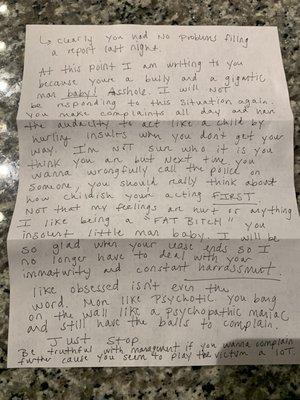 ↳ clearly you had no problems filling
a report last night.
At this point I am writing to you
because you're a bully and a gigantic
man baby! Asshole. I will not
be responding to this situation again.
You make complaints all day and have
the audacity to act like a child by
hurling insults when you don't get your
way. I'm not sure who it is you
think you are but next time you
wanna wrongfully call the police on
someone, you should really think about
how childish your acting FIRST
Not that my feelings are hurt or anything
I like being a "FAT BITCH" you
insolent little man baby. I will be
so glad when your lease ends so I
no longer have to deal with your
immaturity and constant harrassment.
like obsessed isn't even the
word. Mon like psychotic you bang
on the wall like a psychopathic maniac
and still have the balls to complain.
Just stop
Be truthful with management if you wanna complain
further cause you seem to play the victim a lot.